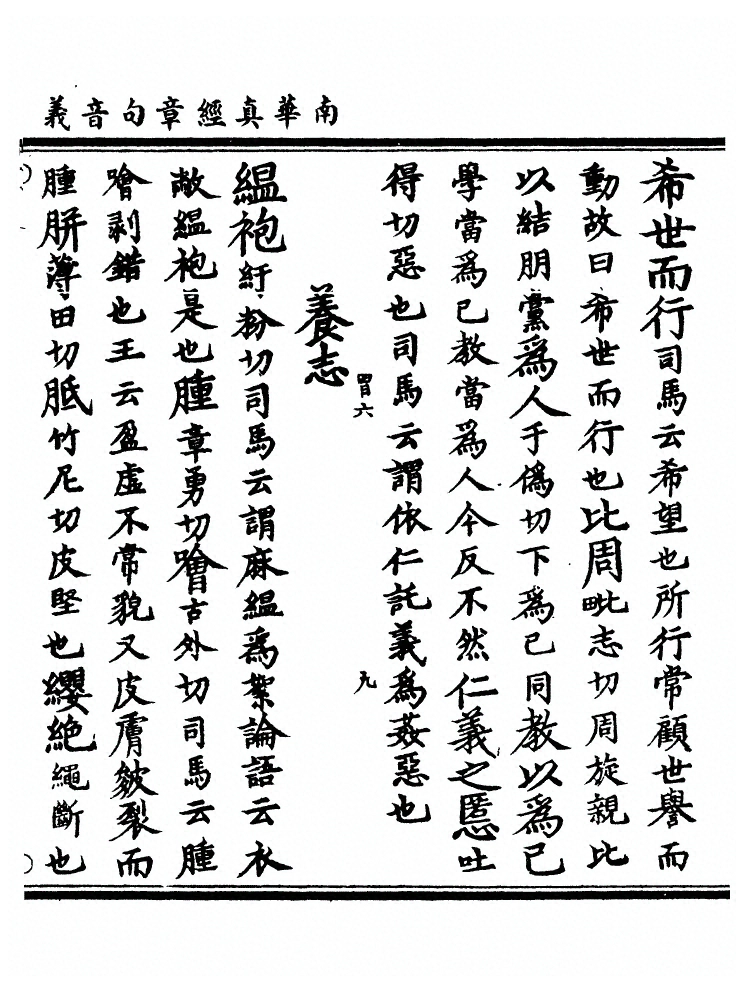 南華真經章句音義
希世而行司馬云希望也所行常顧世譽而
動故曰希世而行也比周毗志切周旋親比
以結朋黨為人于偽切下為已同教以為已
學當為已教當為人今反不然仁義之慝吐
得切惡也司馬云謂依仁託義為姦惡也
罝六
九
養志
縕袍紆粉切司馬云謂麻縕為絮論語云衣
敝縕袍是也腫章勇切噲古外切司馬云腫
噲剥錯也王云盈虛不常貌又皮膚皴裂而
腫胼薄田切胝竹尼切皮堅也纓絶繩斷也